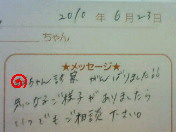 2010年6月23日
ちゃん
★メッセージ★
ちゃん診察 がんばりました!!
気になるご様子がありましたら
いつでもご相談下さい。